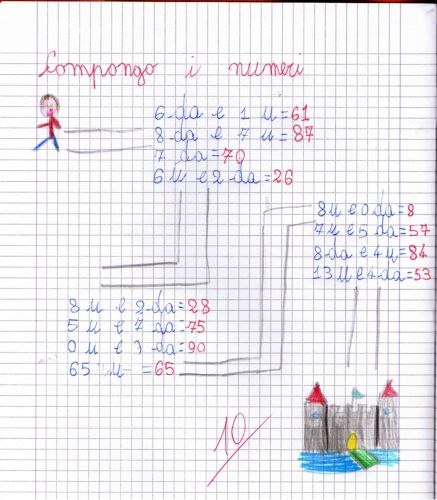 Compongo i numeri
6 da e 1 u = 61
8 da e 7 u = 87
7 da = 70
6 u e 2 da = 26
8 u e 0 da = 8
7 u e 5 da = 57
8 da e 4 u = 84
13 u e 4 da = 53
8 u e 2 da = 28
5 u e 7 da = 75
0 u e 9 da = 90
65 u = 65
10